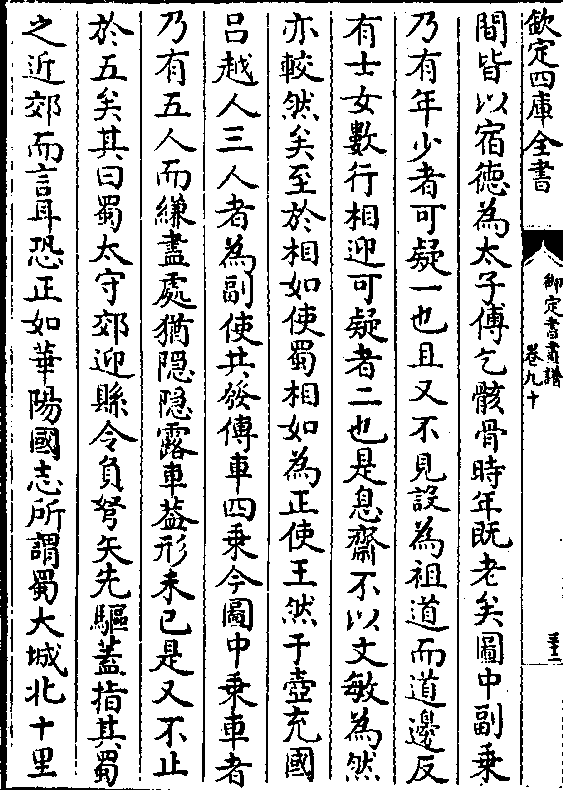 欽定四庫全書
御定書畫譜
卷九十
間皆以宿德為太子傅乞骸骨時年既老矣圖中副乗
乃有年少者可疑一也且又不見設為祖道而道邊反
有士女數行相迎可疑者二也是息齋不以文敏為然
亦較然矣至於相如使蜀相如為正使王然于壺充國
吕越人三人者為副使共發傳車四乗今圖中乗車者
乃有五人而縑盡處猶隠隠露車葢形未已是又不止
於五矣其曰蜀太守郊迎縣令負弩矢先驅蓋指其蜀
之近郊而言耳恐正如華陽國志所謂蜀大城北十里